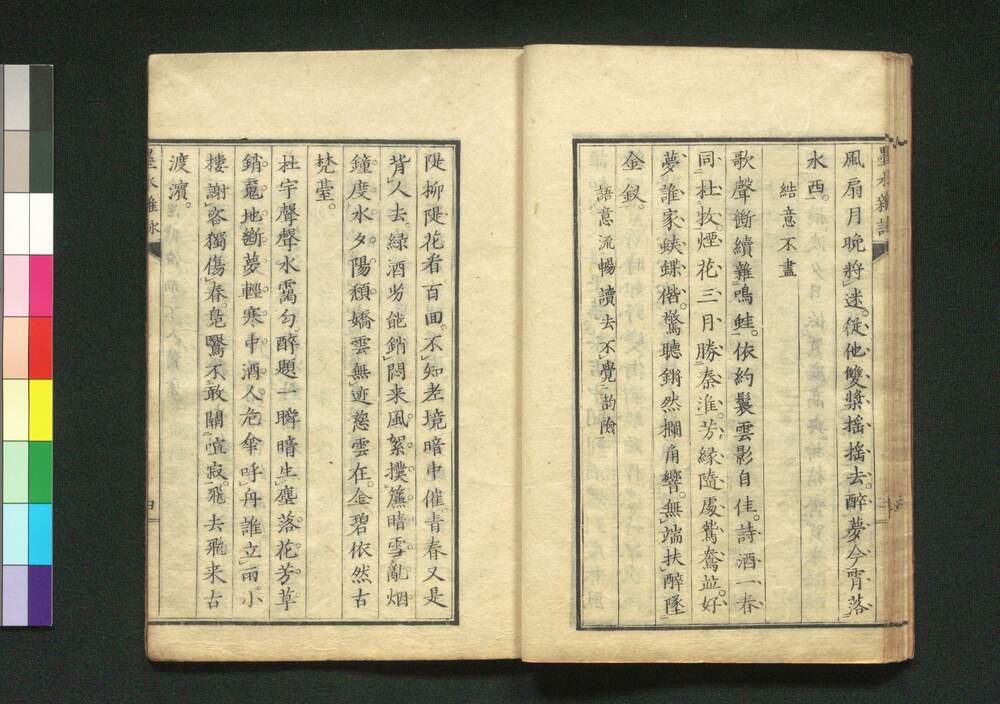 風扇月晩將迷。從他雙槳搖搖去。醉夢今宵落
水西。
結意不盡
歌聲斷續雜鳴蛙。依約鬟雲影自佳。詩酒一春
同杜牧。煙花三月勝秦淮。芳緣隨處鴛鴦竝。好
夢誰家蛺蝶偕。驚聽鏘然攔角響。無端扶醉墜
金釵。
語意流暢讀去不覺韵險
陡柳陡花看百回。不知老境暗中催。青春又是
背人去。綠酒劣能銷悶来。風絮撲簾晴雪亂。烟
鐘度水夕陽頹。嬌雲無迹愁雲在。金碧依然古
梵臺。
杜宇聲聲水靄匀。醉題一瞬暗生塵。落花芳草
銷魂地。斷夢輕寒中酒人。危傘呼舟誰立雨。小
樓謝客獨傷春。鳧鷖不敢關喧寂。飛去飛来古
渡濱。
墨水雜詠
四